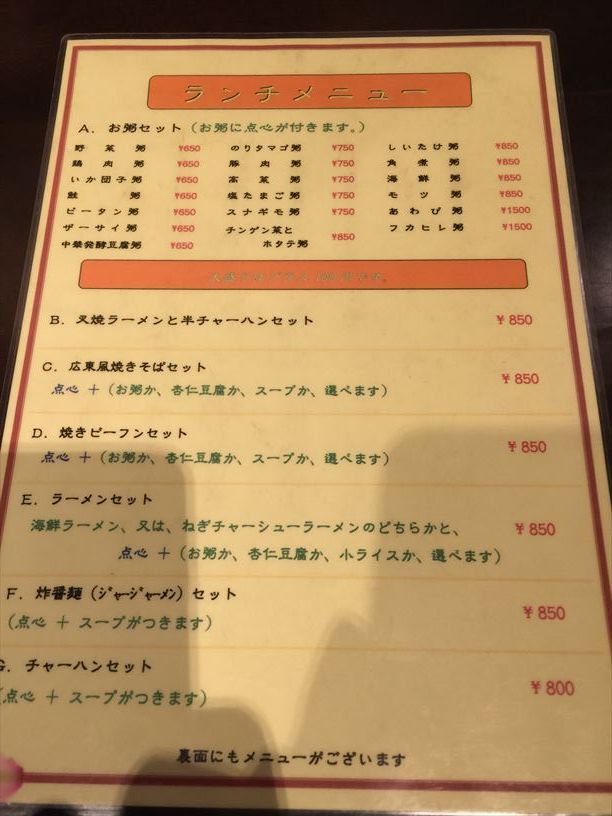 ランチメニュー
A. お粥セット（お粥に点心が付きます。）
野菜粥 ¥650 のりタマゴ粥 ¥750 しいたけ粥 ¥850
鶏肉粥 ¥650 豚肉粥 ¥750 角煮粥 ¥850
いか団子粥 ¥650 高菜粥 ¥750 海鮮粥 ¥850
鮭粥 ¥650 塩たまご粥 ¥750 モツ粥 ¥850
ピータン粥 ¥650 スナギモ粥 ¥750 あわび粥 ¥1500
ザーサイ粥 ¥650 チンゲン菜と フカヒレ粥 ¥1500
中華発酵豆腐粥 ¥650 ホタテ粥 ¥850
B. 叉焼ラーメンと半チャーハンセット ¥850
C. 広東風焼きそばセット
点心 ＋（お粥か、杏仁豆腐か、スープか、選べます） ¥850
D. 焼きビーフンセット
点心 ＋（お粥か、杏仁豆腐か、スープか、選べます） ¥850
E. ラーメンセット
海鮮ラーメン、又は、ねぎチャーシューラーメンのどちらかと、 ¥850
点心 ＋（お粥か、杏仁豆腐か、小ライスか、選べます）
F. 炸醤麺（ｼﾞｬｰｼﾞｬｰﾒﾝ）セット
（点心 ＋ スープがつきます） ¥850
G. チャーハンセット
（点心 ＋ スープがつきます） ¥800
裏面にもメニューがございます